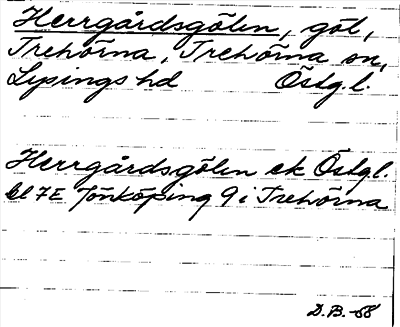 Herrgårdsgölen, göl,
Trehörna, Trehörna sn,
Lysings hd Östg.l.
Herrgårdsgölen ek Östgl.
bl 7E Jönköping 9 i Trehörna
D.B.-68